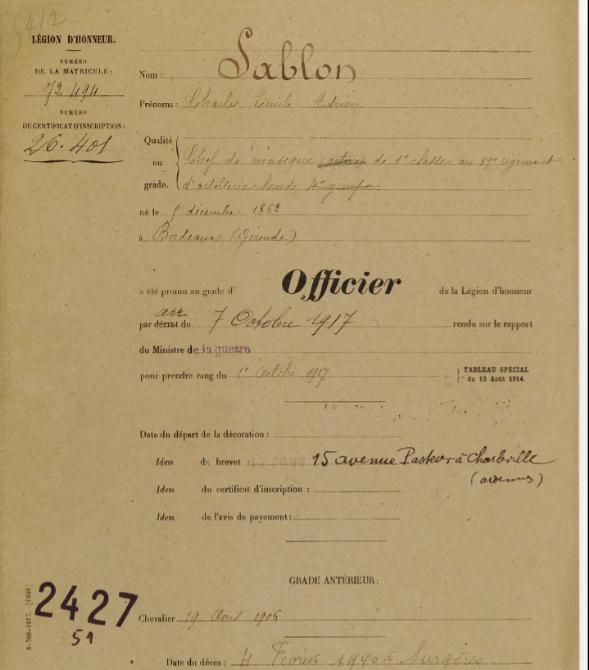 5412
LÉGION D'HONNEUR.
NUMÉRO
DE LA MATRICULE:
72 494
NUMÉRO
DU CERTIFICAT D'INSCRIPTION:
26.401
Nom: Sablon
Prénoms: Charles Emile Adrien
Qualité ou grade. Chef de musique de 1e classe au 89e régiment
d'artillerie lourde 4e groupe
né le 5 décembre 1862
à Bordeaux (Gironde)
a été promu au grade d' Officier de la Légion d'honneur
arr
par décret du 7 Octobre 1917 rendu sur le rapport
du Ministre de la guerre
pour prendre rang du 1er Octobre 1917 TABLEAU SPÉCIAL
du 13 Août 1914.
Date du départ de la décoration:
Idem du brevet: 15 avenue Pasteur à Charleville
(ardennes)
Idem du certificat d'inscription:
Idem de l'avis de payement:
GRADE ANTÉRIEUR:
2427
51
Chevalier 19 Avril 1906
Date du décès: 4 Février 1940 à Surgères